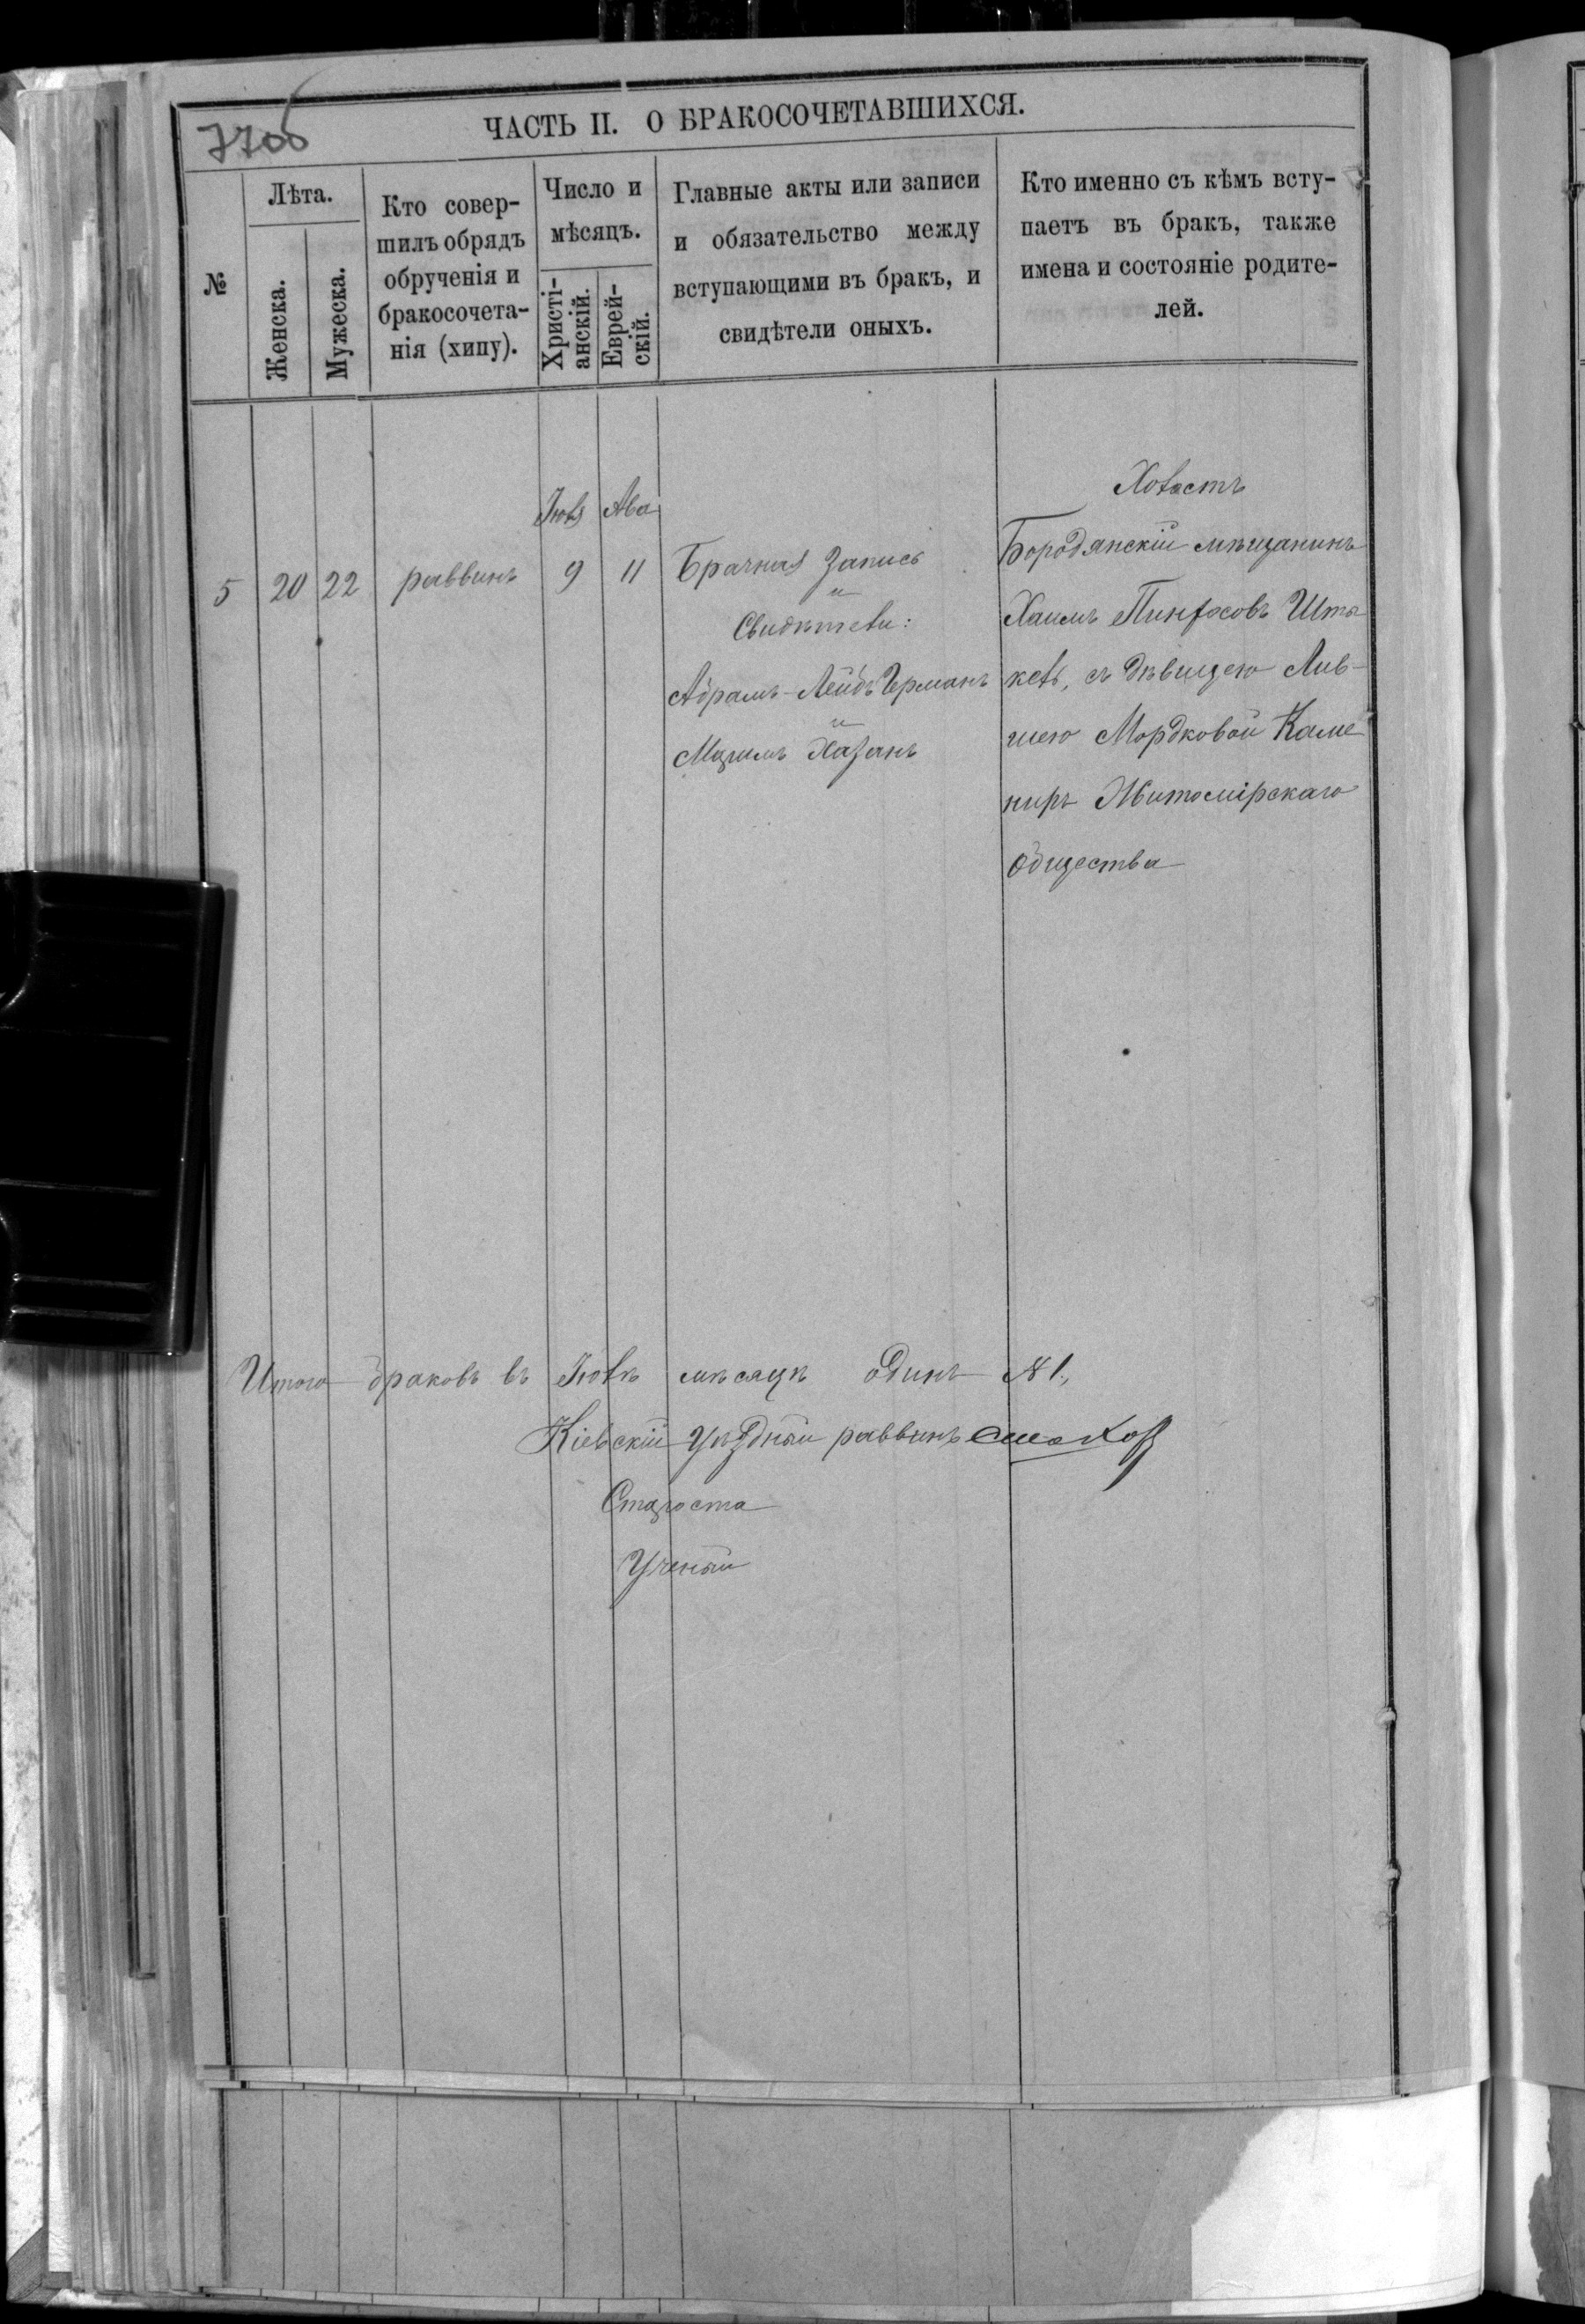 ЧАСТЬ II. О БРАКОСОЧЕТАВШИХСЯ.
№
Лѣта.
Женска.
Мужеска.
Кто совер-
шилъ обрядъ
обрученія и
бракосочета-
нія (хипу).
Число и
мѣсяцъ.
Христі-
анскій.
Еврей-
скій.
Главные акты или записи
и обязательство между
вступающими въ бракъ, и
свидѣтели оныхъ.
Кто именно съ кѣмъ всту-
паетъ въ бракъ, также
имена и состояніе родите-
лей.
5
20
22
раввинъ
Іюля
9
Ава
11
Брачная запись
и
Свидѣтели:
Абрамъ-Лейбъ Германъ
и
Хазанъ
Холостъ
Бородянскій мѣщанинъ
Хаимъ Пинхасовъ Шты
кель, съ дѣвицею Лив-
шею Мордковой Каме
ниръ Житомірскаго
общества
Итого браковъ въ Іюлѣ мѣсяцѣ одинъ № 1.,
Кіевскій Уѣздный раввинъ
Староста
Ученый